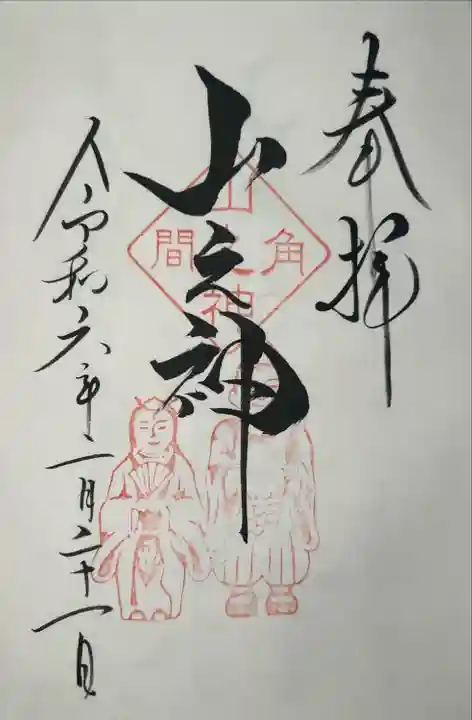 奉拝
山之神
角 間
山之神
令和六年二月二十一日